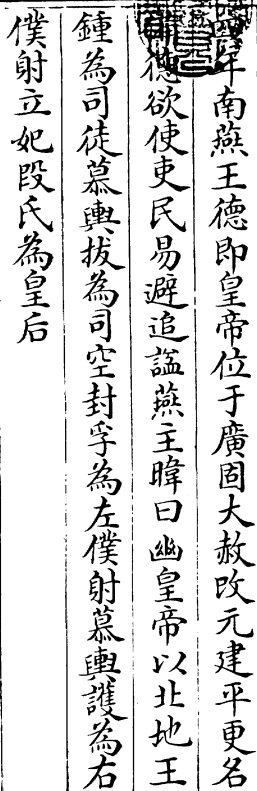 年南燕王德即皇帝位于廣固大赦改元建平更名
德欲使吏民易避追諡燕主暐曰幽皇帝以北地王
鍾為司徒慕輿拔為司空封孚為左僕射慕輿護為右
僕射立妃段氏為皇后